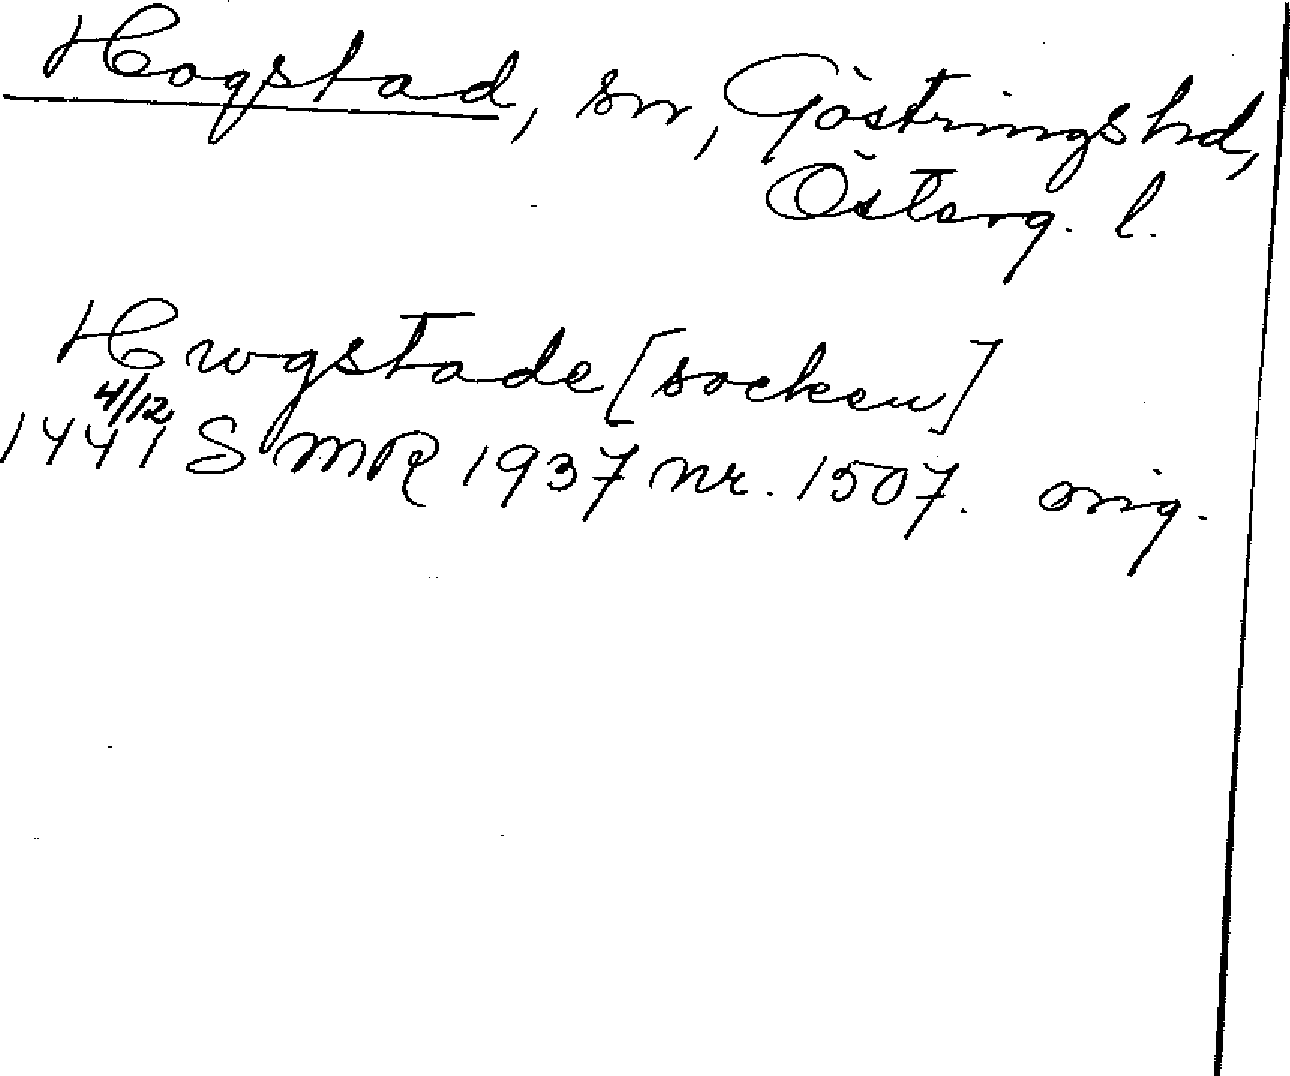 Hogstad, sn, Göstringshd,
Österg. l.
Hwgstade [socken]
1441 4/12 SMR 1937 nr. 1507. orig.